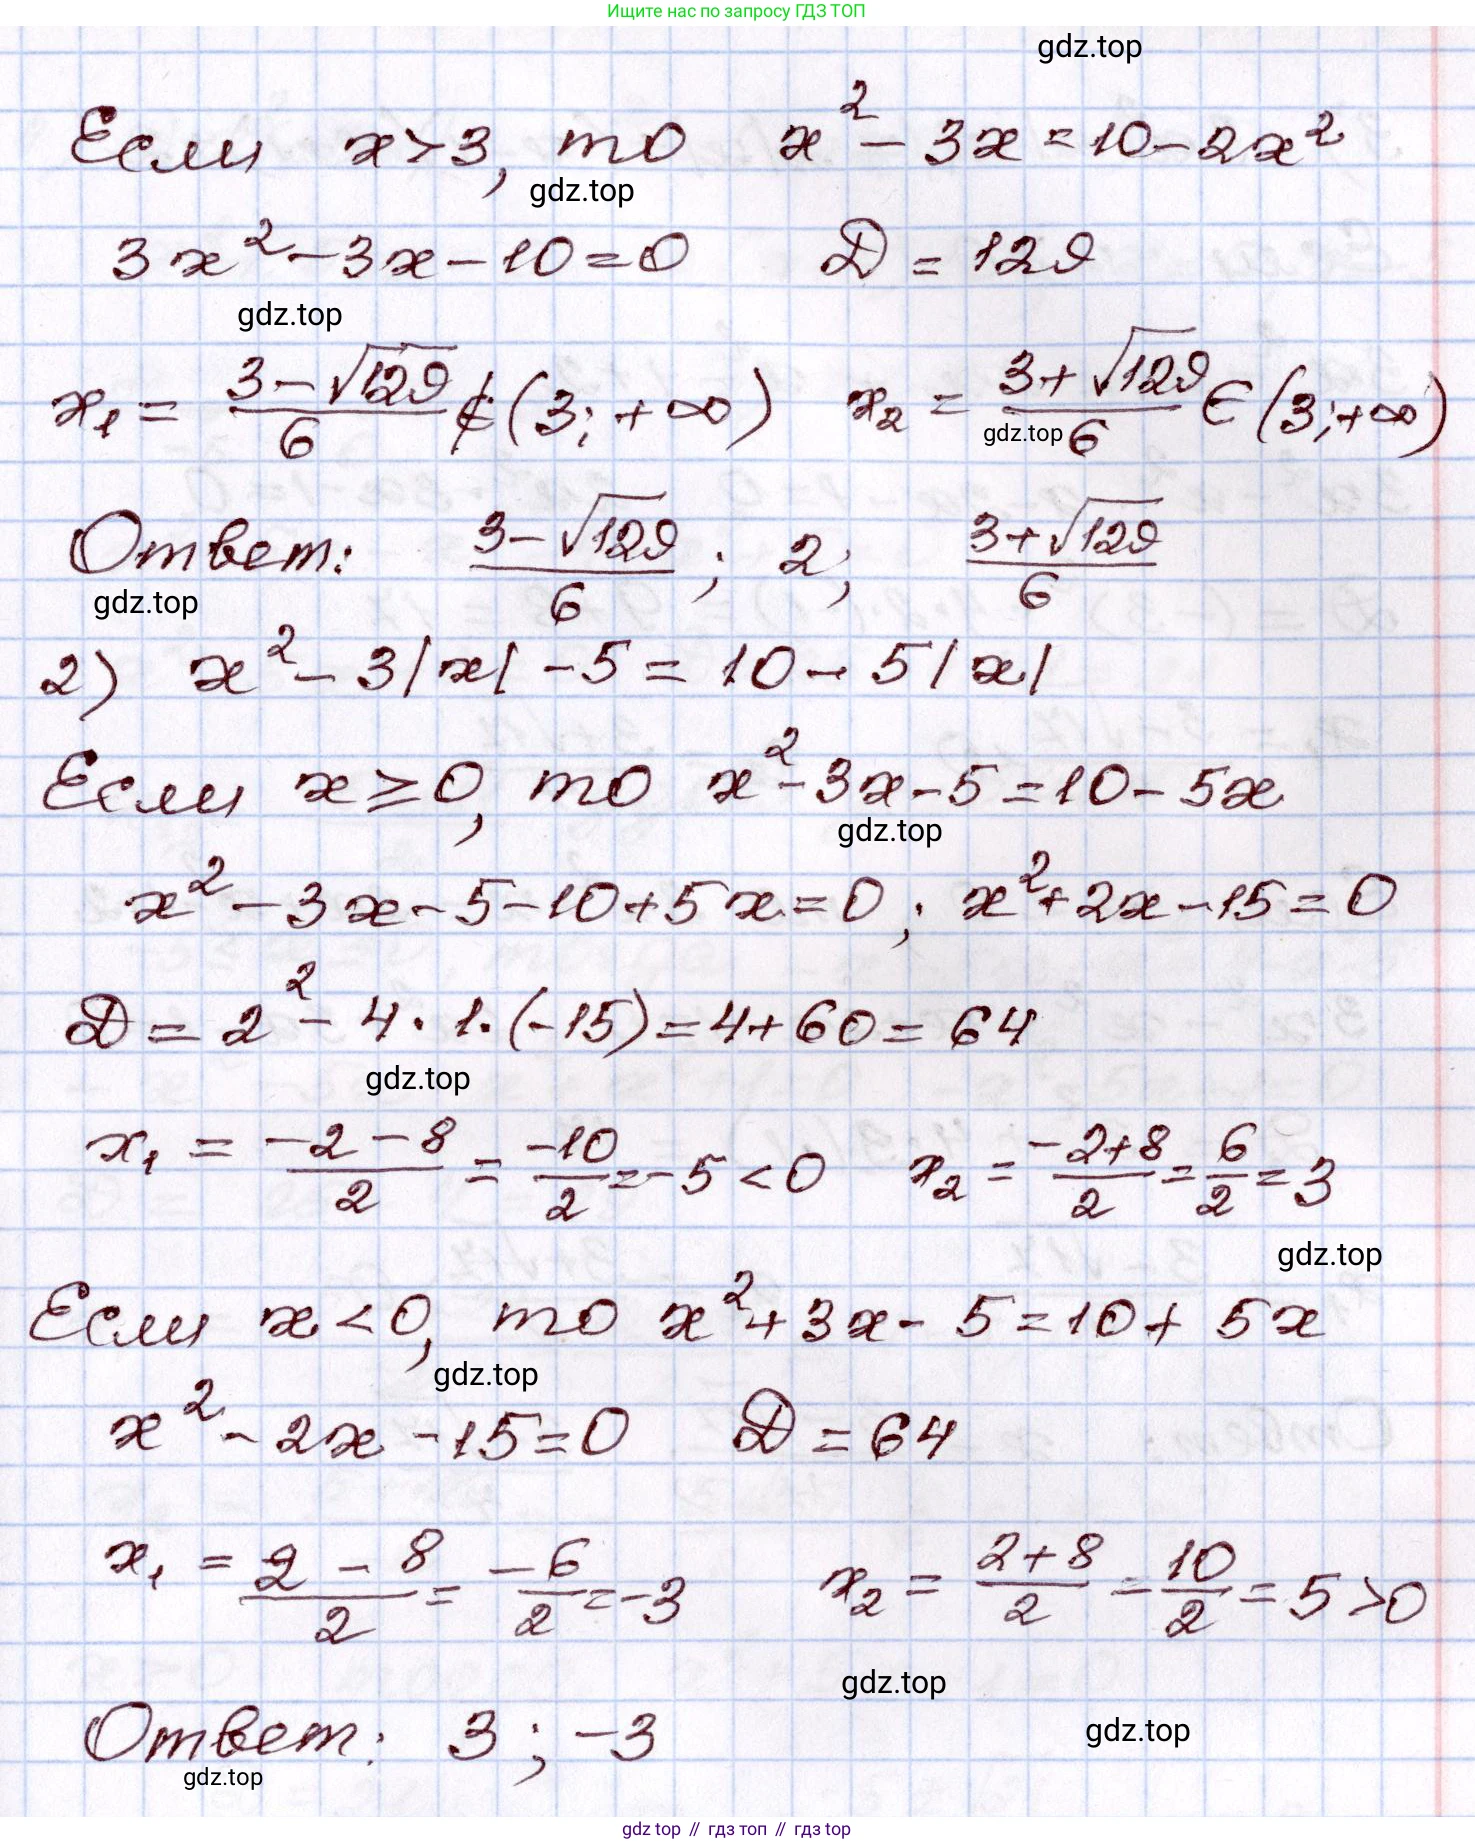 Ищите нас по запросу ГДЗ ТОП
gdz.top
Если x>3, то x² - 3x = 10 - 2x²
gdz.top
3x² - 3x - 10 = 0 D = 129
gdz.top
x₁ = (3-√129)/6 ∉ (3; +∞) x₂ = (3+√129)/6 ∈ (3; +∞)
gdz.top
Ответ: (3-√129)/6; 2; (3+√129)/6
gdz.top
2) x² - 3|x| - 5 = 10 - 5|x|
Если x ≥ 0, то x² - 3x - 5 = 10 - 5x
gdz.top
x² - 3x - 5 - 10 + 5x = 0; x² + 2x - 15 = 0
D = 2² - 4·1·(-15) = 4 + 60 = 64
gdz.top
x₁ = (-2-8)/2 = -10/2 = -5 < 0 x₂ = (-2+8)/2 = 6/2 = 3
gdz.top
Если x < 0, то x² + 3x - 5 = 10 + 5x
gdz.top
x² - 2x - 15 = 0 D = 64
x₁ = (2-8)/2 = -6/2 = -3 x₂ = (2+8)/2 = 10/2 = 5 > 0
gdz.top
Ответ: 3; -3
gdz.top
gdz.top
gdz top // гдз топ // гдз top